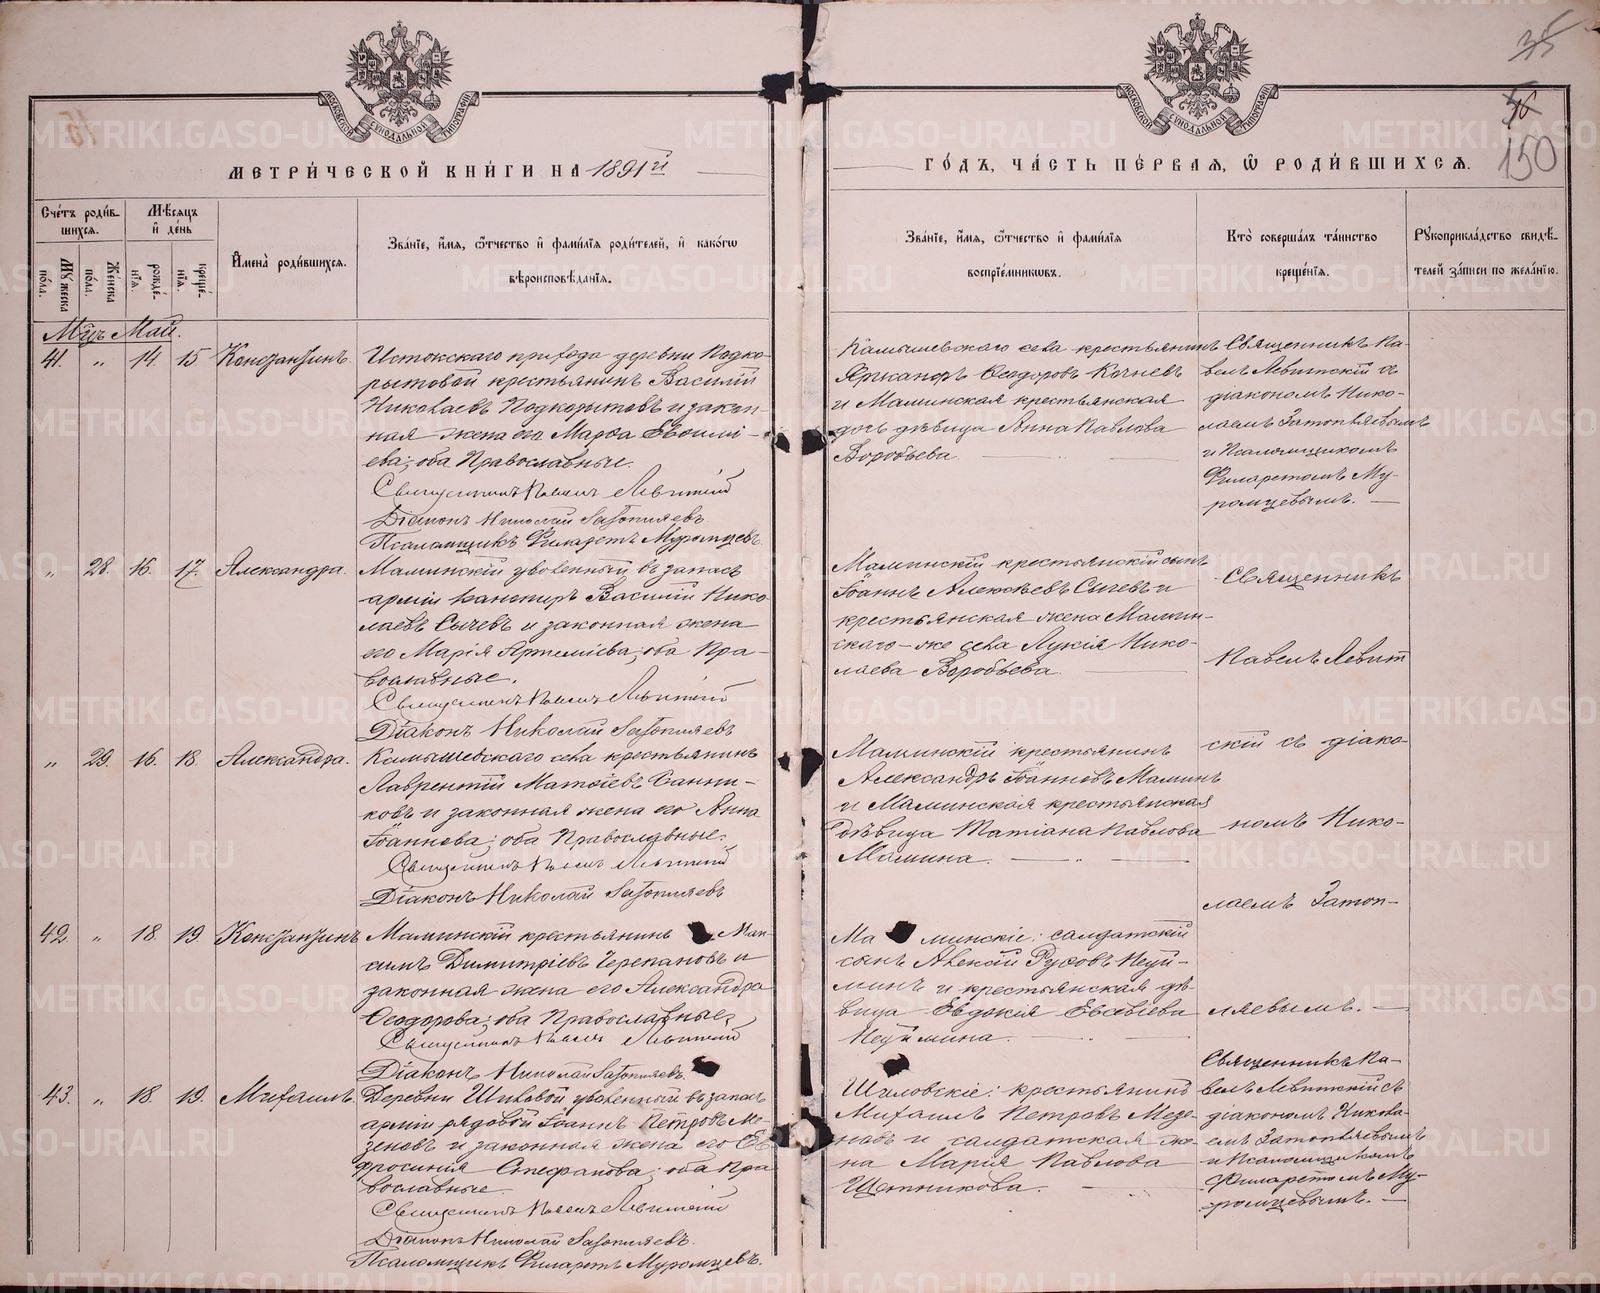 35
150
МЕТРИ́ЧЕСКОЙ КНИ́ГИ НА 1891й
ГО́ДЪ, ЧА́СТЬ ПЕ́РВАЯ, Ѿ РОДИ́ВШИХСЯ.
Сче́тъ роди́вшихся.
Му́жеска по́ла.
Же́нска по́ла.
Мѣ́сяцъ и де́нь
рожде́нія.
креще́нія.
Имена̀ роди́вшихся.
Зва́ніе, и́мя, ѻ҆́тчество и҆ фами́лія роди́телей, и҆ како́гѡ
вѣроисповѣ́данія.
Зва́ніе, и́мя, ѻ҆́тчество и҆ фами́лія
воспріе́мниковъ.
Кто̀ соверша́лъ та́инство
креще́нія.
Рукоприкла́дство свидѣ́-
телей за́писи по жела́нію.
Мцъ Май.
41. " 14. 15. Константинъ.
Истокскаго прихода деревни Подко-
рытовой крестьянинъ Василій
Николаевъ Подкорытовъ и закон-
ная жена его Марѳа Евѳимі-
ева; оба Православные.
Священникъ Павелъ Левитскій
Діаконъ Николай Затопляевъ
Псаломщикъ Филаретъ Муромцевъ.
Камышевскаго села крестьянинъ
Александръ Ѳеодоровъ Кочневъ
и Маминская крестьянская
дочь дѣвица Анна Павлова
Воробьева.
Священникъ Па-
велъ Левитскій съ
діакономъ Нико-
лаемъ Затопляевымъ
и Псаломщикомъ
Филаретомъ Му-
ромцевымъ.
" 28. 16. 17. Александра.
Маминскій уволенный въ запасъ
арміи канониръ Василій Нико-
лаевъ Сычевъ и законная жена
его Марія Артеміева; оба Пра-
вославные.
Священникъ Павелъ Левитскій
Діаконъ Николай Затопляевъ
Маминскій крестьянскій сынъ
Іоаннъ Алексѣевъ Сычевъ и
крестьянская жена Мамин-
скаго-же села Лукія Нико-
лаева Воробьева.
Священникъ
Павелъ Левит
скій съ діако-
номъ Нико-
лаемъ Затоп-
ляевымъ.
" 29. 16. 18. Александра.
Камышевскаго села крестьянинъ
Лаврентій Матѳіевъ Санни-
ковъ и законная жена его Анна
Іоаннова; оба Православные.
Священникъ Павелъ Левитскій
Діаконъ Николай Затопляевъ
Маминскій крестьянинъ
Александръ Іоанновъ Маминъ
и Маминская крестьянская
дѣвица Татіана Павлова
Мамина.
42. " 18. 19. Константинъ
Маминскій крестьянинъ Мак-
симъ Димитріевъ Черепановъ и
законная жена его Александра
Ѳеодорова; оба Православные.
Священникъ Павелъ Левитскій
Діаконъ Николай Затопляевъ.
Маминскіе: салдатскій
сынъ Алексій Неуй-
минъ и крестьянская дѣ-
вица Евдокія Евсевіева
Неуймина.
43. " 18. 19. Михаилъ.
Деревни Шиловой уволенный въ запасъ
арміи рядовой Іоаннъ Петровъ Ме-
зеновъ и законная жена его Ев-
фросинія Стефанова; оба Пра
вославные.
Священникъ Павелъ Левитскій
Діаконъ Николай Затопляевъ.
Псаломщикъ Филаретъ Муромцевъ.
Шиловскіе: крестьянинъ
Михаилъ Петровъ Мезе-
новъ и салдатская же-
на Марія Павлова
Щетникова.
Священникъ Па-
велъ Левитскій съ
діакономъ Никола-
емъ Затопляевымъ
и Псаломщикомъ
Филаретомъ Му-
ромцевымъ.